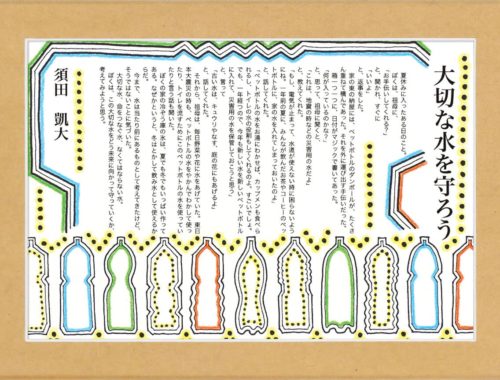 大切な水を守ろう
夏休みに入ったある日のこと。
ぼくは、祖母に、
「お手伝いしてくれる?」
と、聞かれ、すぐに
「いいよ」
と、返事をした。
家の東の納屋には、ペットボトルのダンボールが、たくさ
ん重ねて積んであった。それを外に運び出す手伝いだった。
一箱一つ一つに、日付がマジックで書いてあった。
「何が入っているのかな?」
と、思って、祖母に聞くと
「これは、地震の時など災害用の水だよ」
と、教えてくれた。
「もし、電気が止まって、水道が使えない時に困らないよう
にね。一年前の夏に、みんなが飲んだお茶やコーヒーのペッ
トボトルに、家の水を入れてしまっておいたのよ」
と、話してくれた。
「ペットボトルの水をお湯にわかせば、カップメンも食べら
れるし、トイレの水の役割もしてくれるのよ。すごいでしょ。
でも、一年経つので、今年も新しい水を新しいペットボトル
に入れて、災害用の水を保管しておこうと思う」
と、言った。
「古い水は、キュウリやなす、庭の花にもあげるよ」
と、話してくれた。
それから、祖母は、毎日野菜や花に水をあげていた。東日
本大震災の時も、ペットボトルの水をやかんでわかして使っ
たり、トイレを流すためにこのペットボトルの水を使ってい
たりと昔の話も聞いた。
ぼくの家の冷ぞう庫の水は、夏でも冬でもいっぱい作って
ある。なぜかというと、水をわかして飲み水として使えるか
らだ。
今まで、水は当たり前にあるものとして考えてきたけど、
そうではないことに気づいた。
大切な水、命をつなぐ水、なくてはならない水。
ぼくは、この大切な水をどう未来に向かって守っていくか、
考えていこうと思う。
須田 凱大